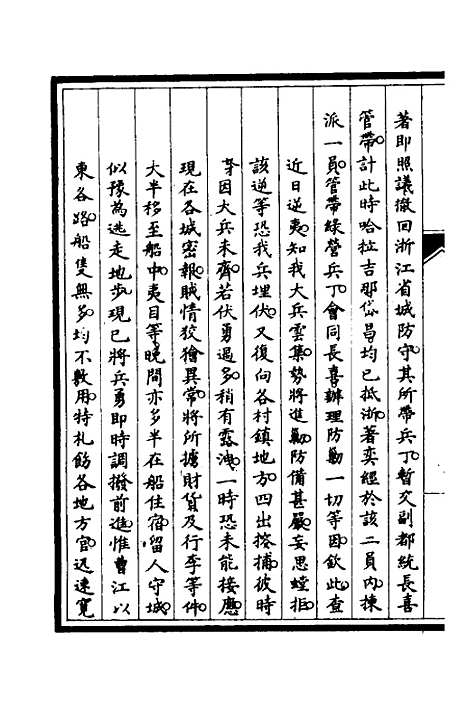 著即照議撤回浙江省城防守其所帶兵丁暫交副都統長喜
管帶計此時哈拉吉那岱昌均已抵浙著奕經於該二員內揀
派一員管帶綠營兵丁會同長喜辦理防勦一切等因欽此查
近日逆夷知我大兵雲集勢將進勦防備甚嚴妄思螳拒
該逆等恐我兵埋伏又復向各村鎮地方四出搜捕彼時
芽因大兵未齊若伏勇過多稍有露洩一時恐未能接應
現在各城密報賊情狡獪異常將所擄財貨及行李等件
大半移至船中夷目等晚間亦多半在船住宿留人守城
似豫為逃走地步現已將兵勇即時調撥前進惟曹江以
東各路船隻無多均不敷用特札飭各地方官迅速寬